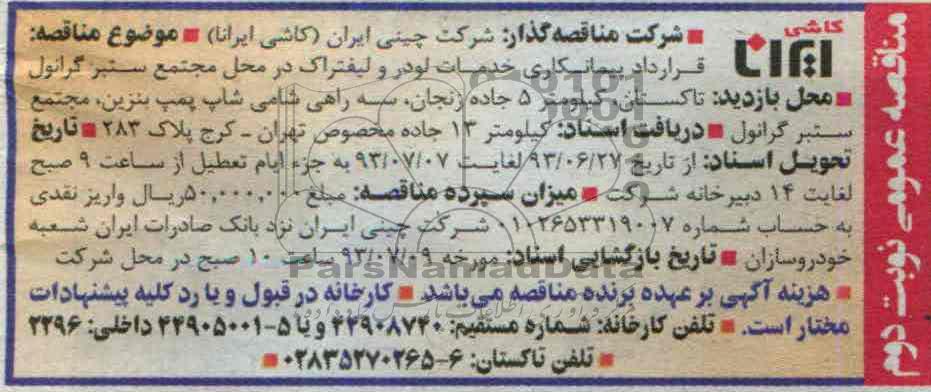 مناقصه عمومی نوبت دوم
کاشی
ایرانا
■ شرکت مناقصه‌گذار: شرکت چینی ایران (کاشی ایرانا) ■ موضوع مناقصه:
قرارداد پیمانکاری خدمات لودر و لیفتراک در محل مجتمع ستبر گرانول
■ محل بازدید: تاکستان، کیلومتر ۵ جاده زنجان، سه راهی شامی شاپ پمپ بنزین، مجتمع
ستبر گرانول ■ دریافت اسناد: کیلومتر ۱۳ جاده مخصوص تهران - کرج پلاک ۲۸۳ ■ تاریخ
تحویل اسناد: از تاریخ ۹۳/۰۶/۲۷ لغایت ۹۳/۰۷/۰۷ به جزء ایام تعطیل از ساعت ۹ صبح
لغایت ۱۴ دبیرخانه شرکت ■ میزان سپرده مناقصه: مبلغ ۵۰,۰۰۰,۰۰۰ریال واریز نقدی
به حساب شماره ۰۱۰۲۶۵۳۳۱۹۰۰۷ شرکت چینی ایران نزد بانک صادرات ایران شعبه
خودروسازان ■ تاریخ بازگشایی اسناد: مورخه ۹۳/۰۷/۰۹ ساعت ۱۰ صبح در محل شرکت
■ هزینه آگهی بر عهده برنده مناقصه می‌باشد ■ کارخانه در قبول و یا رد کلیه پیشنهادات
مختار است. ■ تلفن کارخانه: شماره مستقیم: ۴۴۹۰۸۷۴۰ و یا ۵-۴۴۹۰۵۰۰۱ داخلی: ۲۲۹۶
■ تلفن تاکستان: ۶-۰۲۸۳۵۲۷۰۲۶۵ ■
ParsNamadData